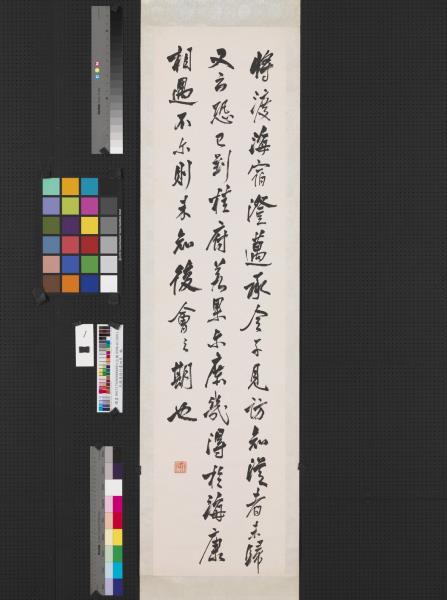 將渡海宿澄邁承令子見訪知從者未歸
又云恐已到桂府若果尔庶幾得於海康
相遇不尔則未知後會之期也